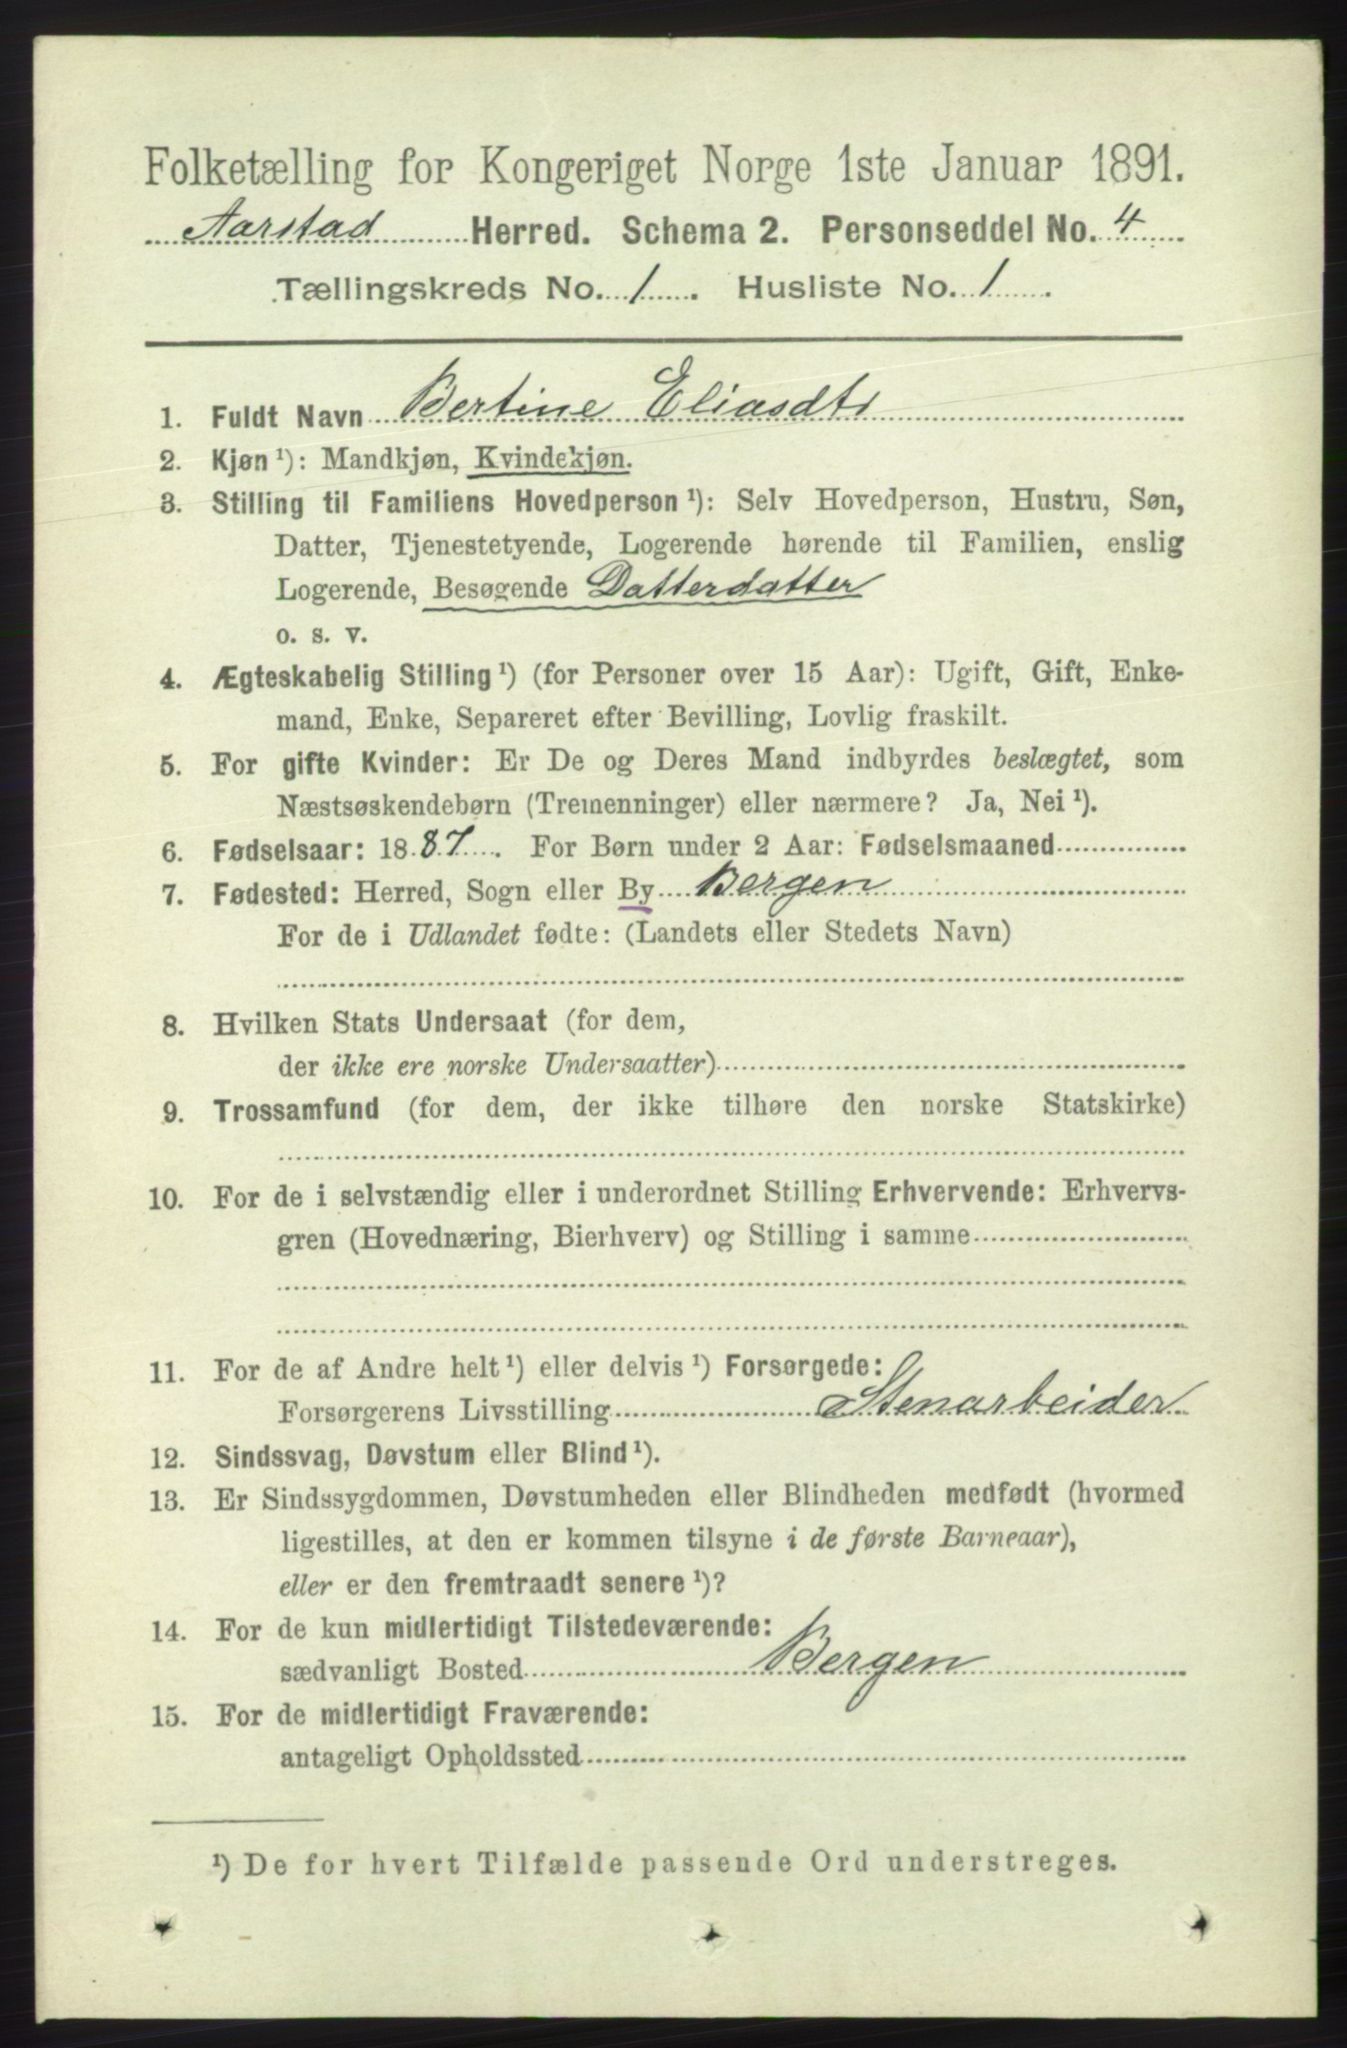 Folketælling for Kongeriget Norge 1ste Januar 1891.
Aarstad Herred. Schema 2. Personseddel No. 4
Tællingskreds No. 1. Husliste No. 1.
1. Fuldt Navn Bertine Eliasdtr
2. Kjøn ¹): Mandkjøn, Kvindekjøn.
3. Stilling til Familiens Hovedperson ¹): Selv Hovedperson, Hustru, Søn,
Datter, Tjenestetyende, Logerende hørende til Familien, enslig
Logerende, Besøgende Datterdatter
o. s. v.
4. Ægteskabelig Stilling ¹) (for Personer over 15 Aar): Ugift, Gift, Enke-
mand, Enke, Separeret efter Bevilling, Lovlig fraskilt.
5. For gifte Kvinder: Er De og Deres Mand indbyrdes beslægtet, som
Næstsøskendebørn (Tremenninger) eller nærmere? Ja, Nei ¹).
6. Fødselsaar: 1887. For Børn under 2 Aar: Fødselsmaaned
7. Fødested: Herred, Sogn eller By Bergen
For de i Udlandet fødte: (Landets eller Stedets Navn)
8. Hvilken Stats Undersaat (for dem,
der ikke ere norske Undersaatter)
9. Trossamfund (for dem, der ikke tilhøre den norske Statskirke)
10. For de i selvstændig eller i underordnet Stilling Erhvervende: Erhvervs-
gren (Hovednæring, Bierhverv) og Stilling i samme
11. For de af Andre helt ¹) eller delvis ¹) Forsørgede:
Forsørgerens Livsstilling Stenarbeider
12. Sindssvag, Døvstum eller Blind ¹).
13. Er Sindssygdommen, Døvstumheden eller Blindheden medfødt (hvormed
ligestilles, at den er kommen tilsyne i de første Barneaar),
eller er den fremtraadt senere ¹)?
14. For de kun midlertidigt Tilstedeværende:
sædvanligt Bosted Bergen
15. For de midlertidigt Fraværende:
antageligt Opholdssted
¹) De for hvert Tilfælde passende Ord understreges.